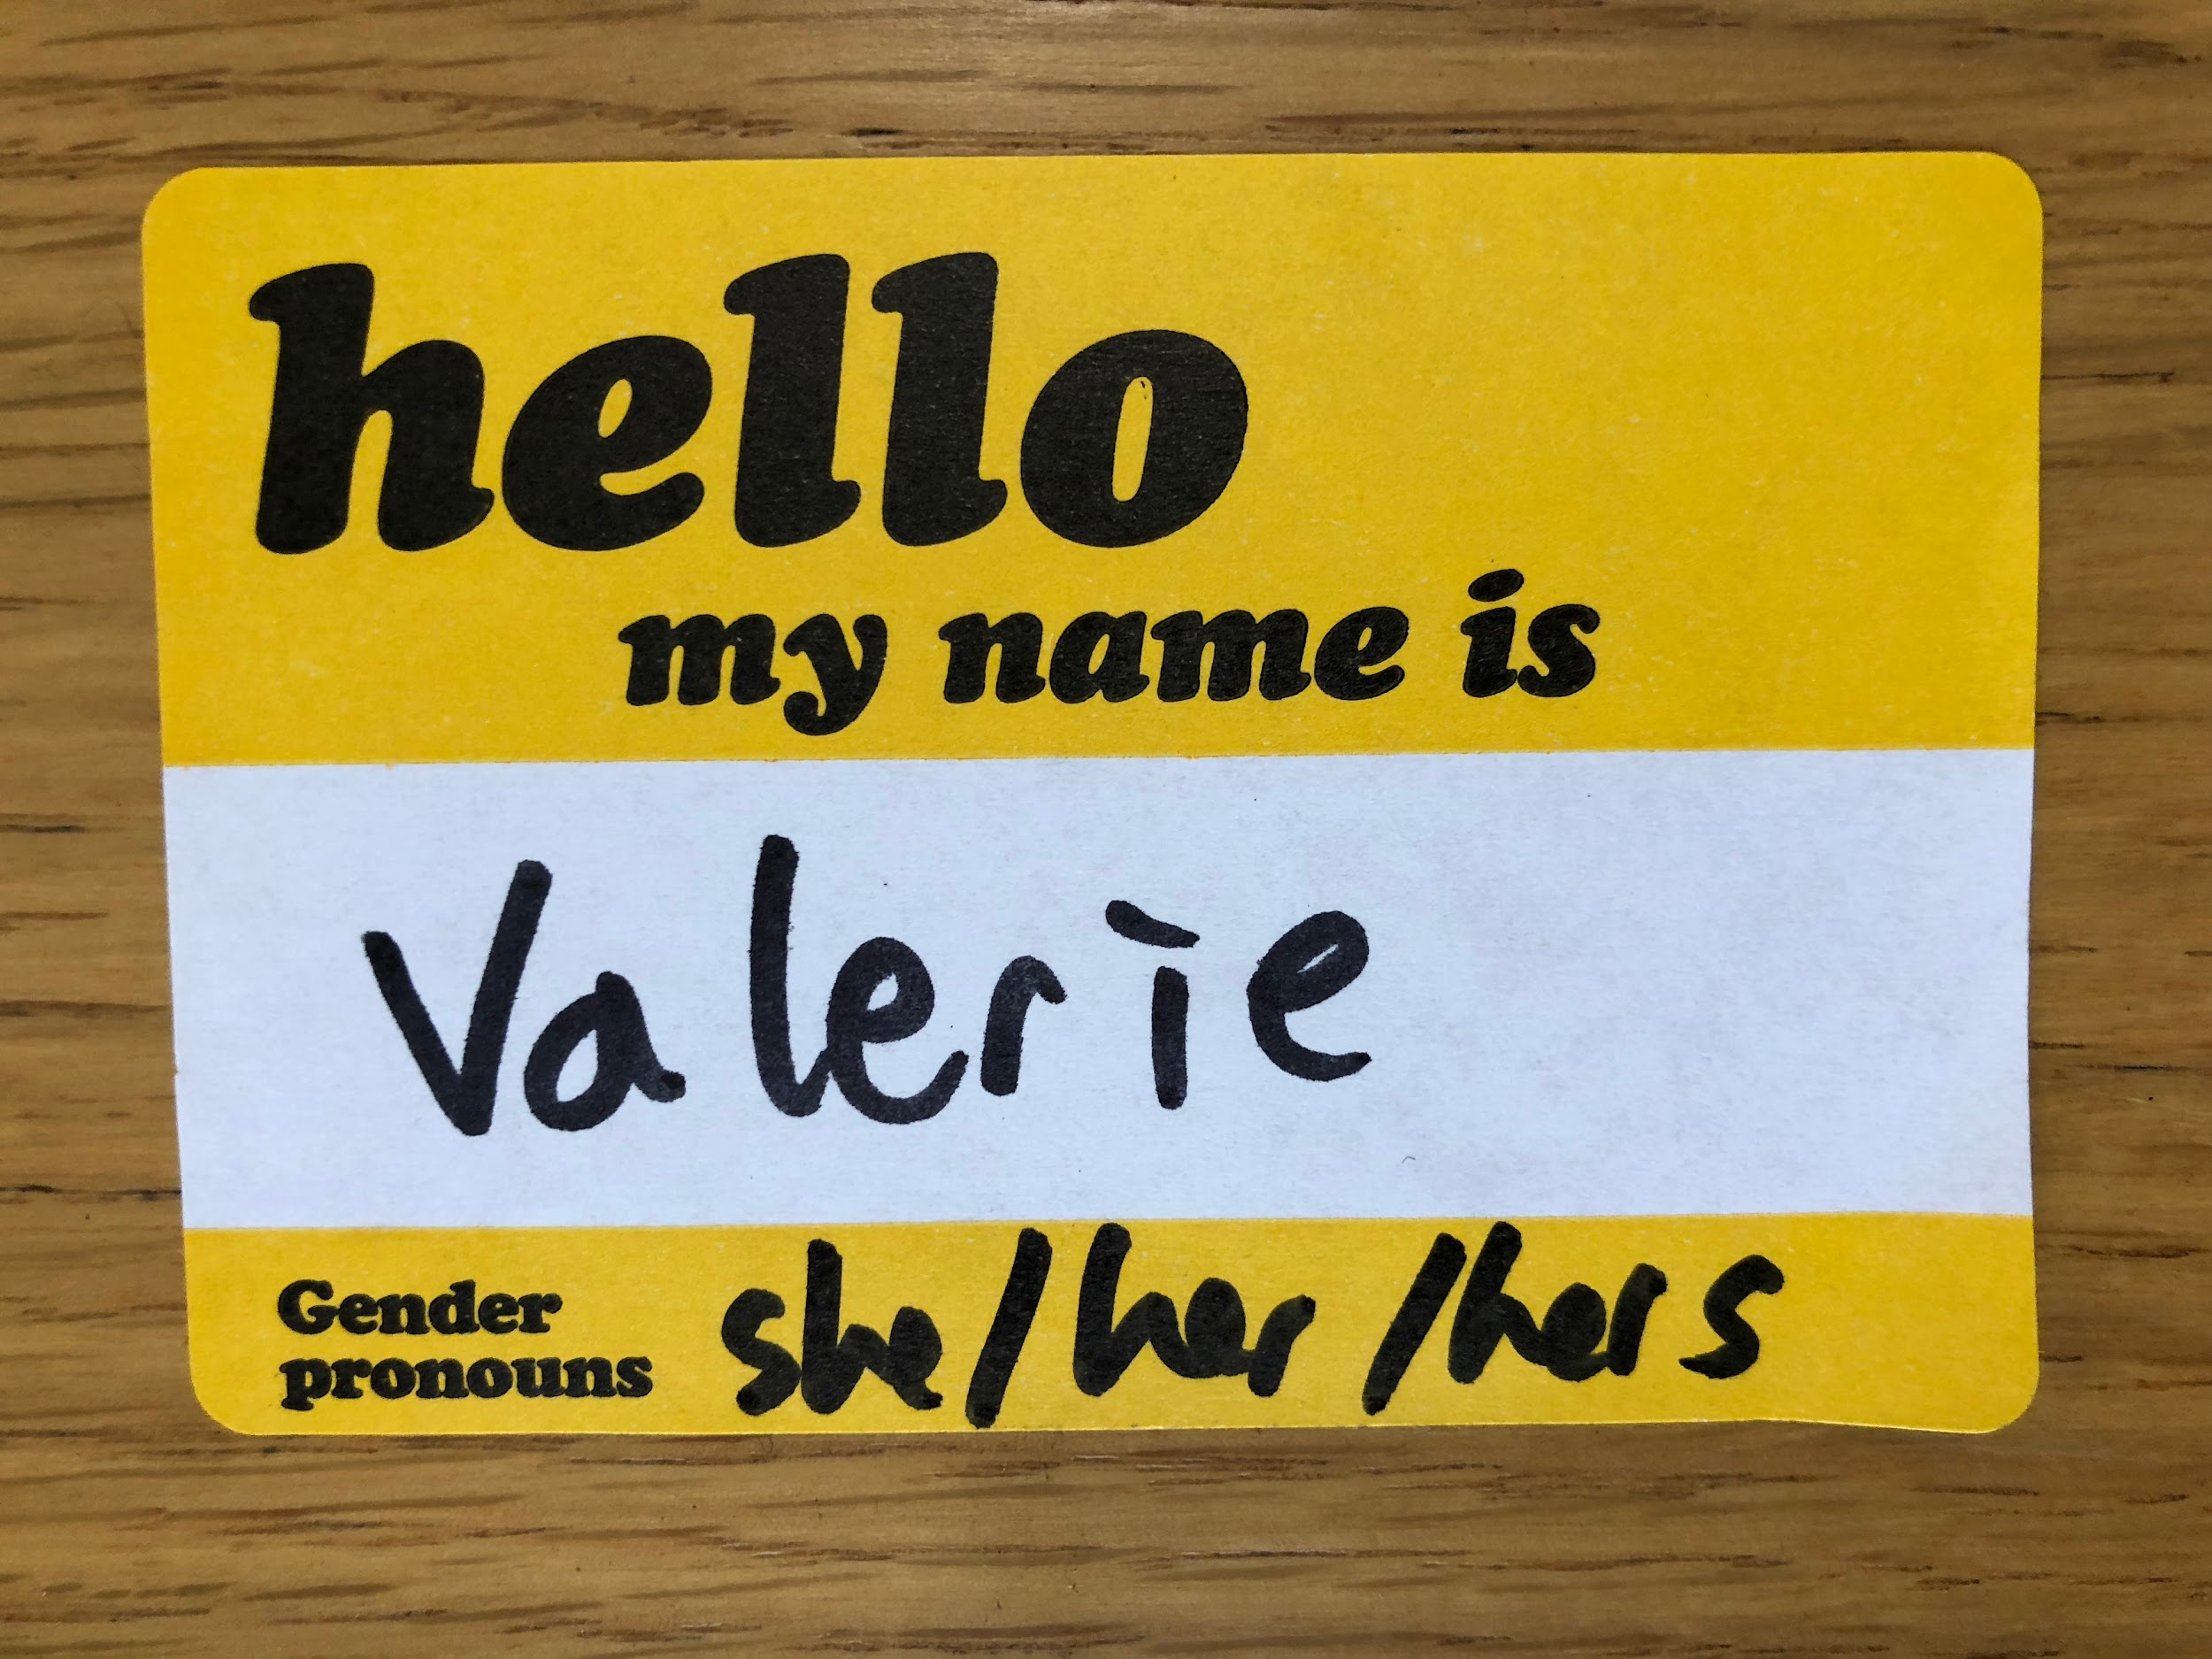 hello
my name is
Valerie
Gender
pronouns
she/her/hers